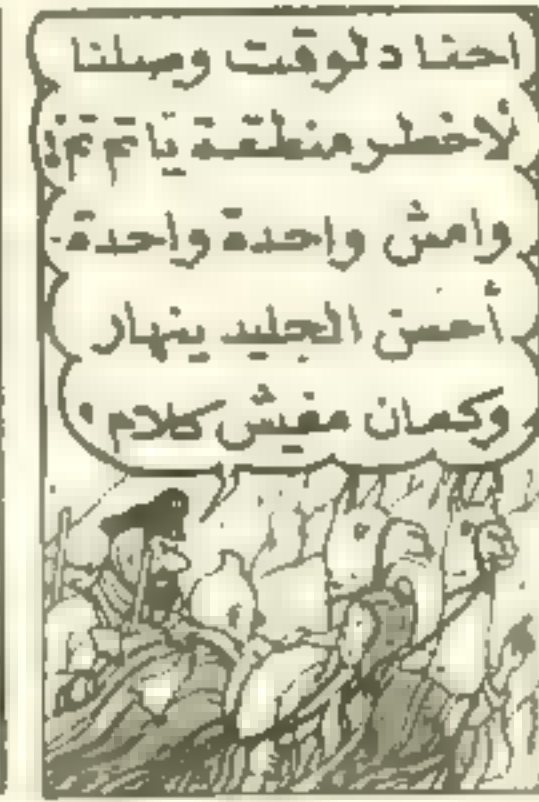 احنا دلوقت وصلنا
لأخطر منطقة يا
وامش واحدة واحدة.
أحسن الجليد ينهار
وكمان مفيش كلام